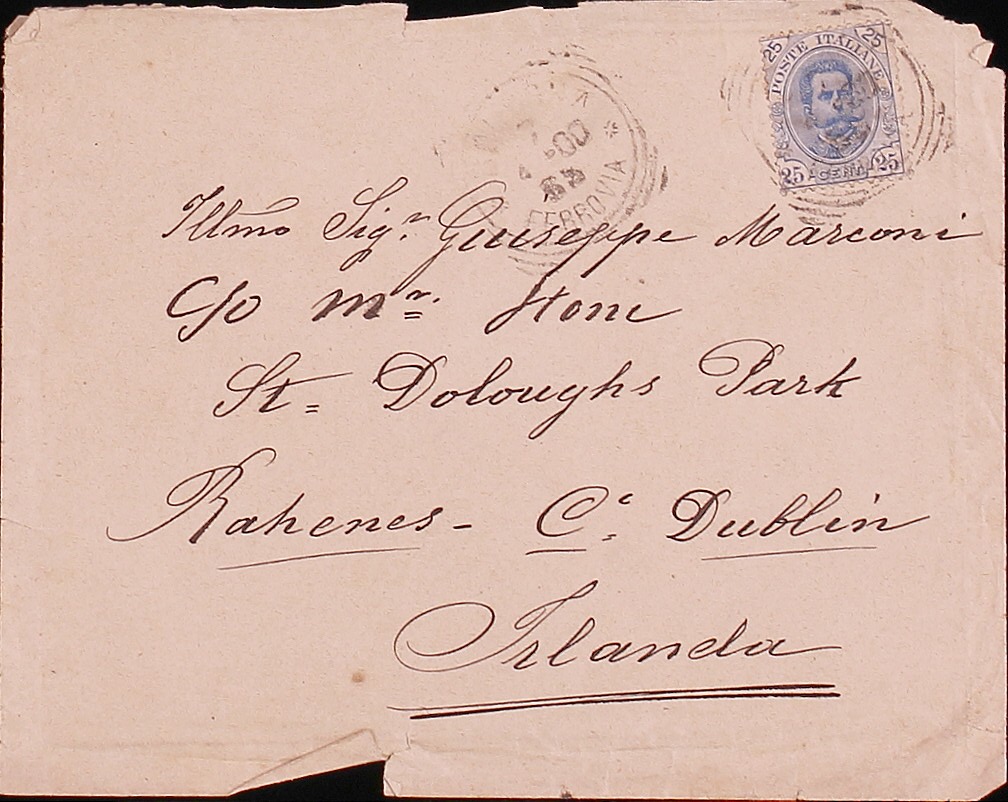 25 POSTE ITALIANE 25
25 CENT. 25
FERROVIA
Illmo Sigr. Giuseppe Marconi
C/o Mr. Stone
St= Doloughs Park
Rahenes - Co. Dublin
Irlanda